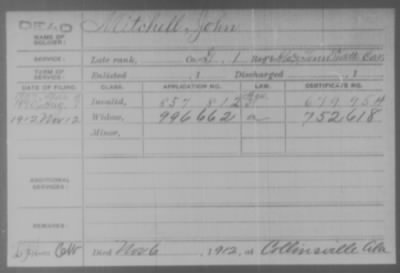 DEAD
NAME OF SOLDIER: Mitchell, John
SERVICE: Late rank, Co. 1 Reg't Cav
TERM OF SERVICE: Enlisted , 1 Discharged , 1
DATE OF FILING. CLASS. APPLICATION NO. LAW. CERTIFICATE NO.
Invalid, 857 812
1912 Nov 12 Widow, 996662 a 752618
Minor,
ADDITIONAL SERVICES:
REMARKS:
Died Nov 6 , 1912, at Collinsville Ala